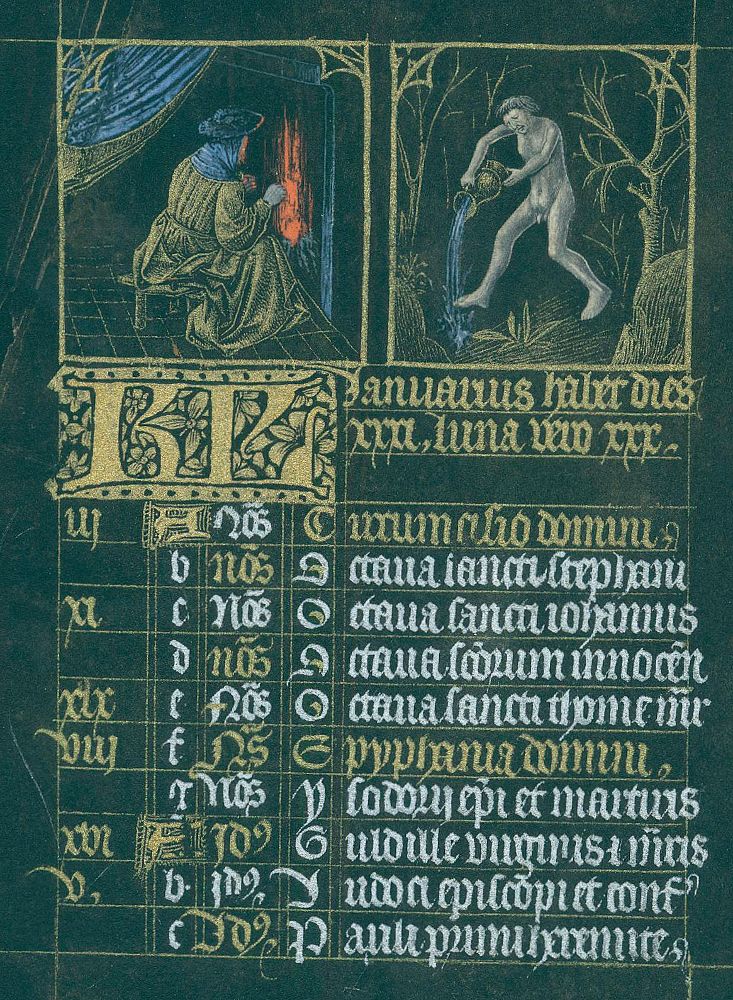 KL Januarius habet dies
xxxi, luna vero xxx.
iij A Nōs Circumcisio domini
b nōs Octava sancti stephani
xi c Nōs Octava sancti iohannis
d nōs Octava scōrum innocen̄
xix e Nōs Octava sancti thome mr̄
viij f Nōs Epyphania domini
g Nōs Ysodorij ep̄i et martiris
xvi A Jdꝰ Guldille virginis
v. b. jdꝰ Judoci episcōpi et conf
c Jdꝰ Pauli primi heremite